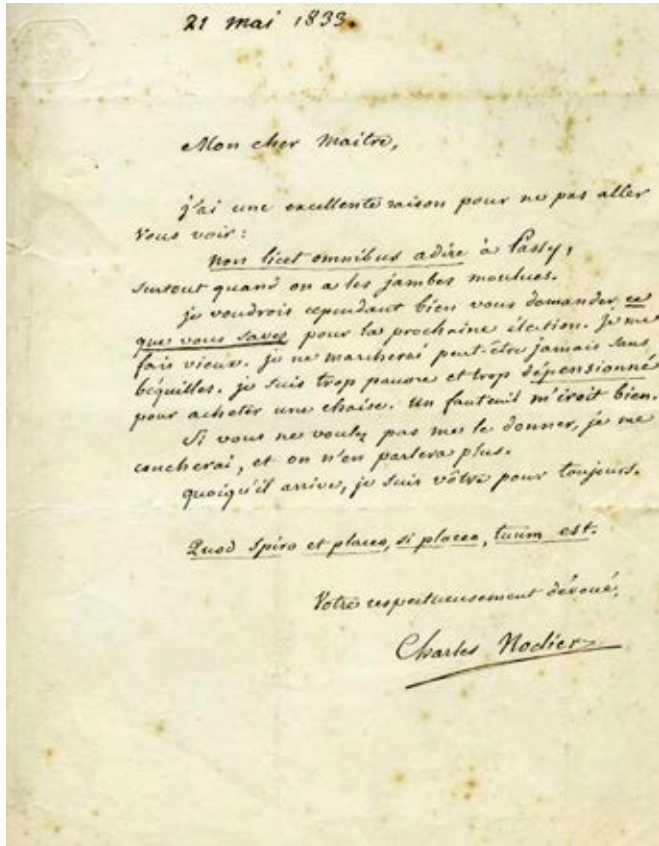 21 mai 1833.
Mon cher maitre,
j'ai une excellente raison pour ne pas aller
vous voir :
non licet omnibus adire à Passy,
surtout quand on a les jambes moulues.
je voudrois cependant bien vous demander ce
que vous savez pour la prochaine élection. je me
fais vieux. je ne marcherai peut-être jamais sans
béquilles. je suis trop pauvre et trop dépensionné
pour acheter une chaise. un fauteuil m'iroit bien.
Si vous ne voulez pas me le donner, je me
coucherai, et on n'en parlera plus.
quoiqu'il arrive, je suis vôtre pour toujours.
Quod spiro et placeo, si placeo, tuum est.
Votre respectueusement dévoué,
Charles Nodier